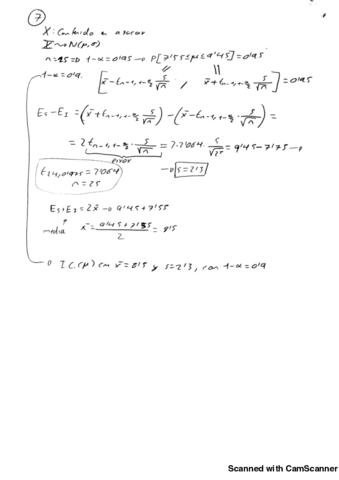 7
X: Contenido en azúcar
X ~> N(μ, σ)
n=25 => 1-α=0'95 -> P[7'55≤μ≤9'45]=0'95
1-α=0'9. [x̄-t_{n-1,1-α/2} s/√n , x̄+t_{n-1,1-α/2} s/√n]=0'95
Es-EI = (x̄+t_{n-1,1-α/2} s/√n) - (x̄-t_{n-1,1-α/2}· s/√n) =
= 2 t_{n-1,1-α/2}· s/√n = 2·2'064· s/√25 = 9'45-7'55 ->
error
t_{24,0'975}=2'064
n=25
-> s=2'3
Es+EI=2x̄ -> 9'45+7'55
media
x̄ = (9'45+7'55)/2 = 8'5
-> I.C.(μ) con x̄=8'5 y s=2'3, con 1-α=0'9
Scanned with CamScanner